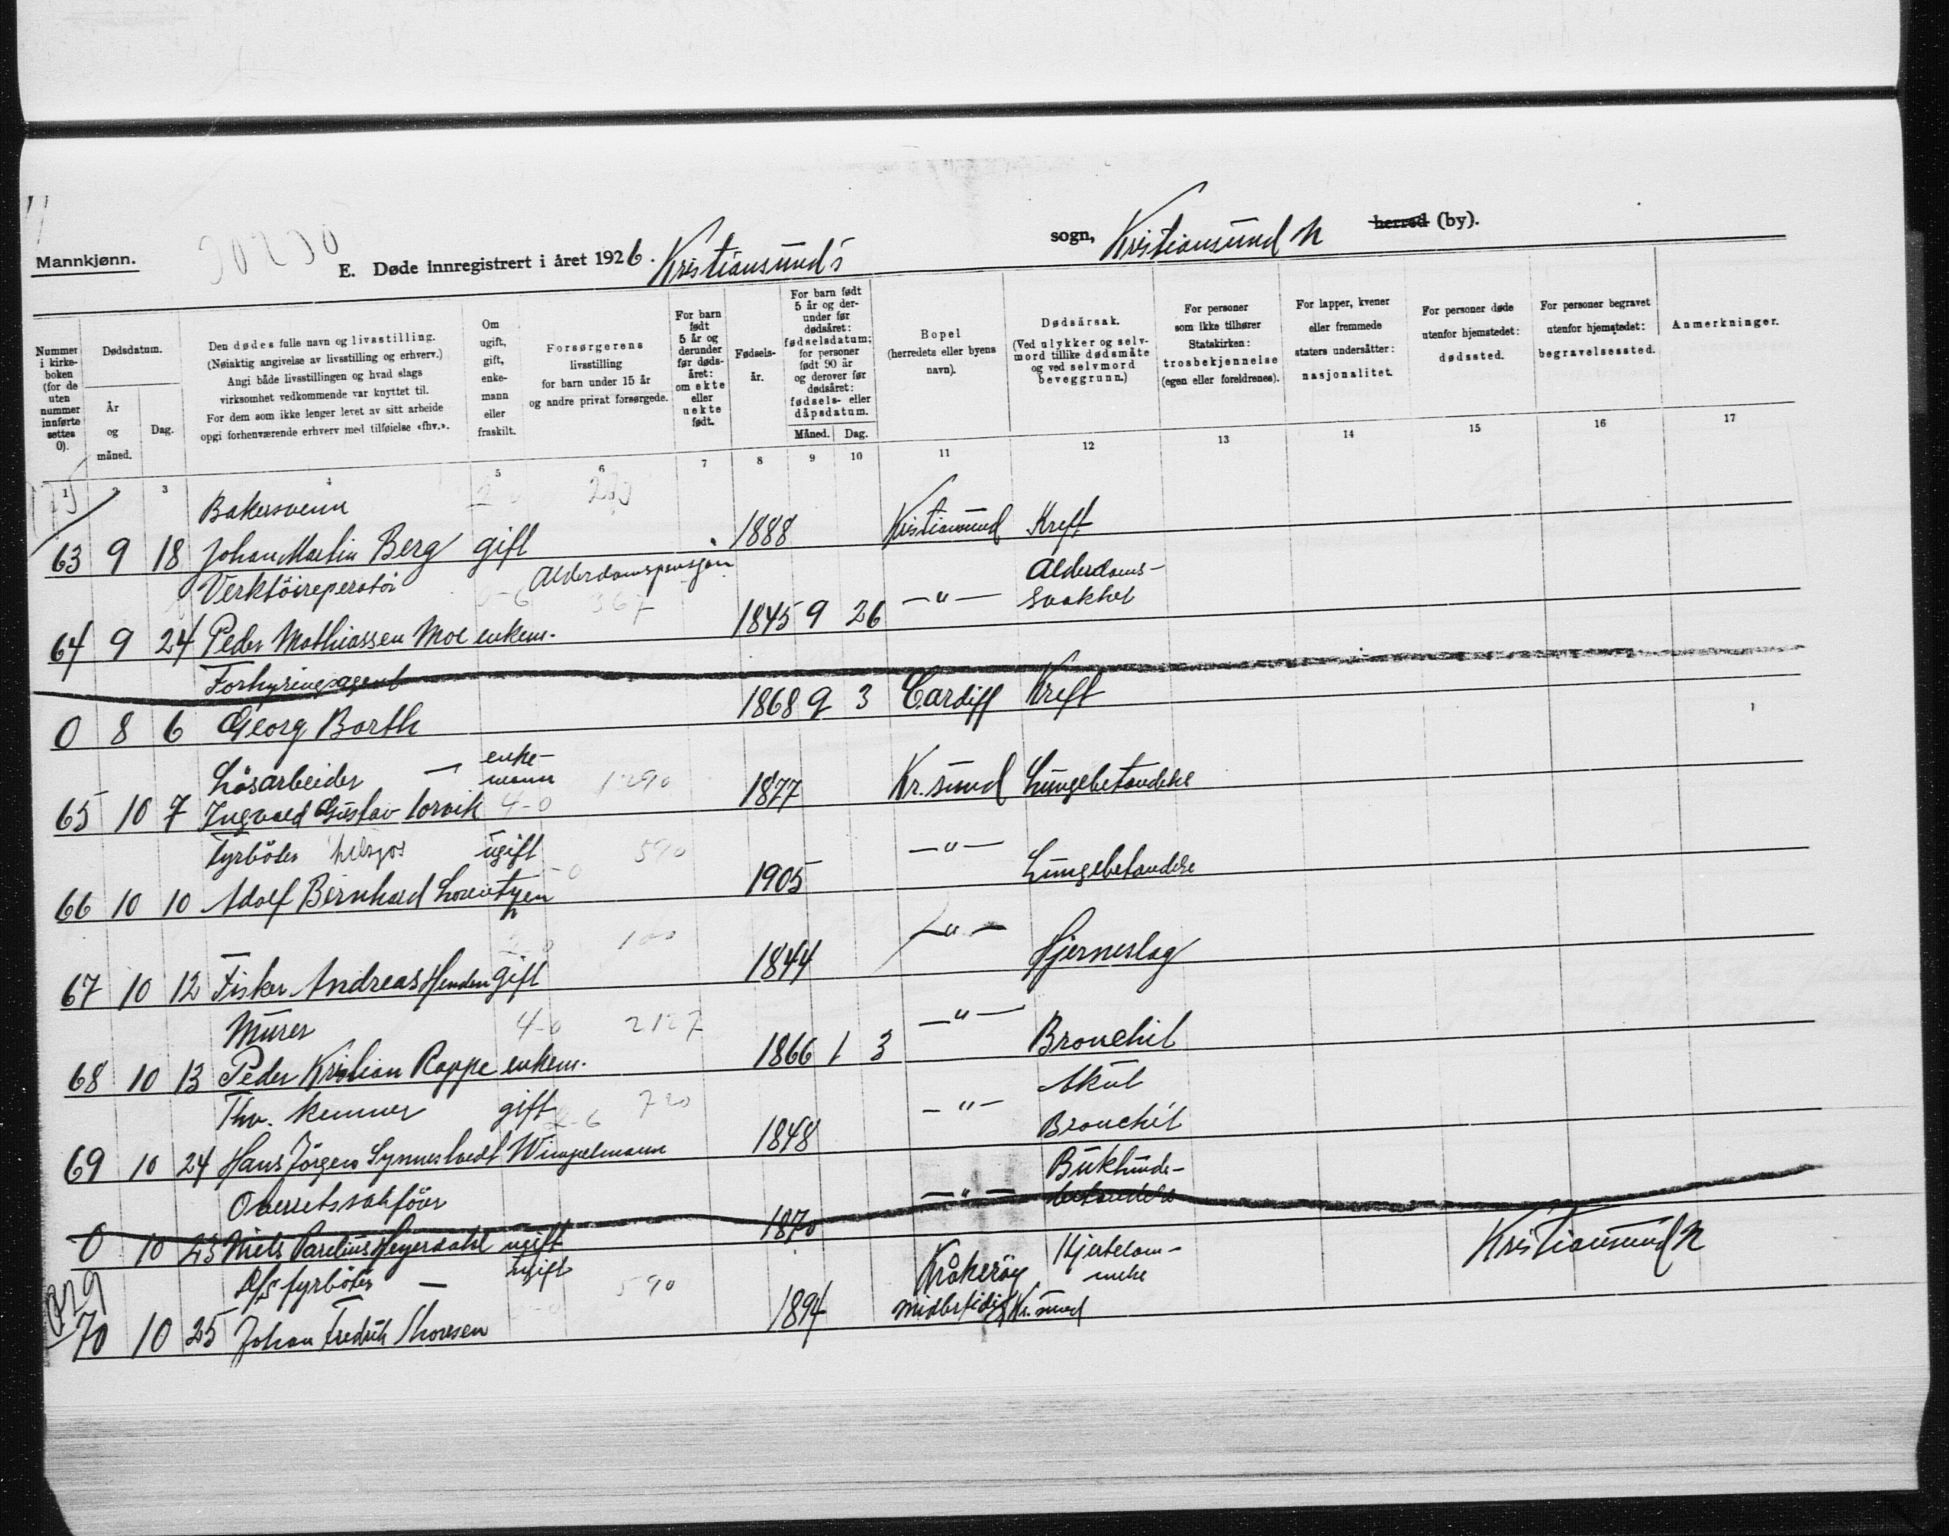 Mannkjønn.
E. Døde innregistrert i året 1926. Kristiansunds sogn, Kristiansund N herred (by).
Nummer i kirkeboken (for de uten nummer innførte settes 0).
Dødsdatum.
År og måned.
Dag.
Den dødes fulle navn og livsstilling.
(Nøiaktig angivelse av livsstilling og erhverv.)
Angi både livsstillingen og hvad slags
virksomhet vedkommende var knyttet til.
For dem som ikke lenger levet av sitt arbeide
opgi forhenværende erhverv med tilføielse «fhv.».
Om ugift, gift, enkemann eller fraskilt.
Forsørgerens
livsstilling
for barn under 15 år
og andre privat forsørgede.
For barn født 5 år og derunder før dødsåret: om ekte eller uekte født.
Fødselsår.
For barn født 5 år og derunder før dødsåret: fødselsdatum; for personer født 90 år og derover før dødsåret: fødsels- eller dåpsdatum.
Måned. Dag.
Bopel
(herredets eller byens navn).
Dødsårsak.
(Ved ulykker og selvmord tillike dødsmåte og ved selvmord beveggrunn.)
For personer
som ikke tilhører
Statskirken:
trosbekjennelse
(egen eller foreldrenes).
For lapper, kvener
eller fremmede
staters undersåtter:
nasjonalitet.
For personer døde
utenfor hjemstedet:
dødssted.
For personer begravet
utenfor hjemstedet:
begravelsessted.
Anmerkninger.
1 2 3 4 5 6 7 8 9 10 11 12 13 14 15 16 17
Bakersvenn
63 9 18 Johan Martin Berg gift 1888 Kristiansund Kreft
Verktöireperatör Alderdomspensjon Alderdoms-
367
64 9 24 Peder Mathiassen Moe enkem. 1845 9 26 —"— svakhet
Forhyringsagent
0 8 6 Georg Barth 1868 9 3 Cardiff Kreft
Lösarbeider — enke-
mann 1290
65 10 7 Ingvald Gustav Torvik 4-0 1877 Kr.sund Lungebetendelse
Fyrböter ugift 590
66 10 10 Adolf Bernhard Lorentzen 1905 —"— Lungebetendelse
2-0 100
67 10 12 Fisker Andreas Henden gift 1844 —"— Hjerneslag
Murer 4-0 2127
68 10 13 Peder Kristian Rappe enkem. 1866 1 3 —"— Bronchit
Fhv. kemner gift 2-6 720 Akut
69 10 24 Hans Jörgen Synnestvedt Wingelmann 1848 —"— Bronchit
Overretssakförer Bukhinde-
0 10 23 Niels Parelius Heyerdahl ugift 1870 —"— betendelse
D/S fyrböter — ugift 590 Kråkeröy Hjertelam-
melse Kristiansund N
70 10 25 Johan Fredrik Thoresen 1894 midlertidig Kr.sund